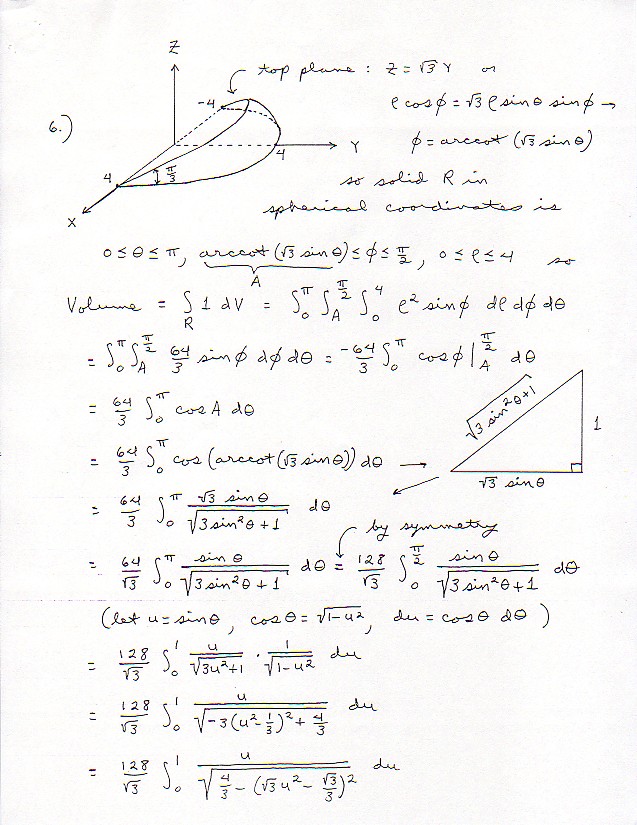 Z
top plane : z = √3 y or
-4
ρ cosφ = √3 ρ sinθ sinφ →
6.)
Y
4
φ = arccot (√3 sinθ)
4
π/3
so solid R in
X
spherical coordinates is
0 ≤ θ ≤ π, arccot (√3 sinθ) ≤ φ ≤ π/2, 0 ≤ ρ ≤ 4 so
A
Volume = ∫_R 1 dV = ∫_0^π ∫_A^{π/2} ∫_0^4 ρ² sinφ dρ dφ dθ
= ∫_0^π ∫_A^{π/2} 64/3 sinφ dφ dθ = -64/3 ∫_0^π cosφ |_A^{π/2} dθ
= 64/3 ∫_0^π cos A dθ
√(3 sin²θ+1)
1
= 64/3 ∫_0^π cos (arccot (√3 sinθ)) dθ →
√3 sinθ
= 64/3 ∫_0^π (√3 sinθ)/√(3 sin²θ + 1) dθ
by symmetry
= 64/√3 ∫_0^π sinθ/√(3 sin²θ + 1) dθ = 128/√3 ∫_0^{π/2} sinθ/√(3 sin²θ + 1) dθ
(let u = sinθ, cosθ = √(1-u²), du = cosθ dθ)
= 128/√3 ∫_0^1 u/√(3u²+1) · 1/√(1-u²) du
= 128/√3 ∫_0^1 u/√(-3(u²-1/3)² + 4/3) du
= 128/√3 ∫_0^1 u/√(4/3 - (√3 u² - √3/3)²) du